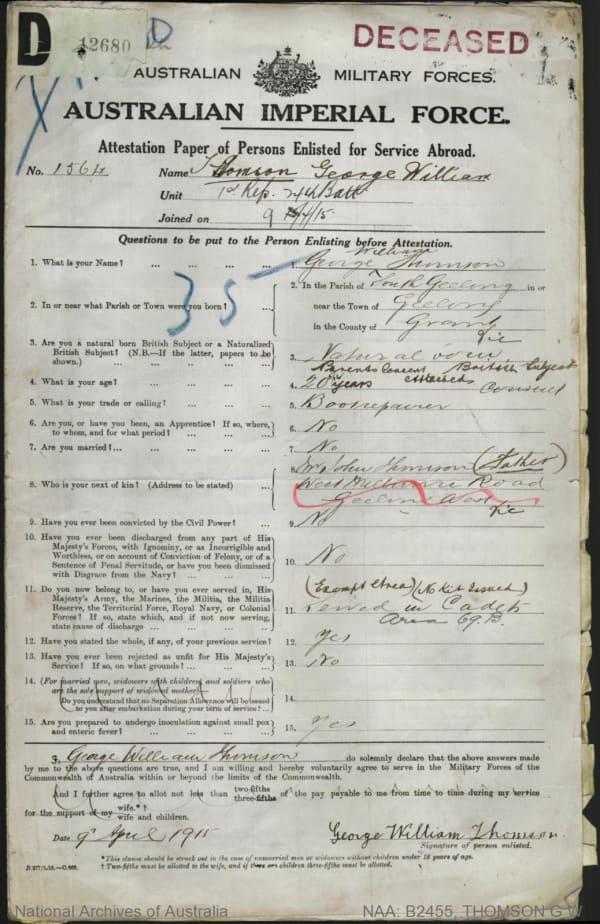 D 12680
DECEASED
AUSTRALIAN MILITARY FORCES.
AUSTRALIAN IMPERIAL FORCE.
Attestation Paper of Persons Enlisted for Service Abroad.
No. 1564 Name Thomson George William
Unit 1st Rep. 24th Batt
Joined on 9/4/15
Questions to be put to the Person Enlisting before Attestation.
35
1. What is your Name? ... ... ... ... 1. George William Thomson
2. In or near what Parish or Town were you born? ... 2. In the Parish of South Geelong in or
near the Town of Geelong
in the County of Grant
Vic
3. Are you a natural born British Subject or a Naturalized
British Subject? (N.B.—If the latter, papers to be
shown.) ... ... ... ... 3. Natural born
British Subject
Parents Consent attached
4. What is your age? ... ... ... ... 4. 20 years
5. What is your trade or calling? ... ... ... 5. Bootrepairer
6. Are you, or have you been, an Apprentice? If so, where,
to whom, and for what period? ... ... 6. No
7. Are you married? ... ... ... ... 7. No
8. Who is your next of kin? (Address to be stated) ... 8. Mr John Thomson (Father)
West Melbourne Road
Geelong West
Vic
9. Have you ever been convicted by the Civil Power? ... 9. No
10. Have you ever been discharged from any part of His
Majesty's Forces, with Ignominy, or as Incorrigible and
Worthless, or on account of Conviction of Felony, or of a
Sentence of Penal Servitude, or have you been dismissed
with Disgrace from the Navy? ... ... 10. No
11. Do you now belong to, or have you ever served in, His
Majesty's Army, the Marines, the Militia, the Militia
Reserve, the Territorial Force, Royal Navy, or Colonial
Forces? If so, state which, and if not now serving,
state cause of discharge ... ... ... 11. (Exempt Area) (No Kit Issued)
Served in Cadets
Area 69.B.
12. Have you stated the whole, if any, of your previous service? 12. Yes
13. Have you ever been rejected as unfit for His Majesty's
Service? If so, on what grounds? ... ... 13. No
14. (For married men, widowers with children and soldiers who
are the sole support of widowed mother)—
Do you understand that no Separation Allowance will be issued
to you after embarkation during your term of service? ... 14.
15. Are you prepared to undergo inoculation against small pox
and enteric fever? ... ... ... 15. Yes
I, George William Thomson do solemnly declare that the above answers made
by me to the above questions are true, and I am willing and hereby voluntarily agree to serve in the Military Forces of the
Commonwealth of Australia within or beyond the limits of the Commonwealth.
And I further agree to allot not less than two-fifths three-fifths of the pay payable to me from time to time during my service
for the support of my wife.*† wife and children.
Date 9th April 1915 George William Thomson
Signature of person enlisted.
*This clause should be struck out in the case of unmarried men or widowers without children under 18 years of age.
† Two-fifths must be allotted to the wife, and if there are children three-fifths must be allotted.
National Archives of Australia NAA: B2455, THOMSON G W